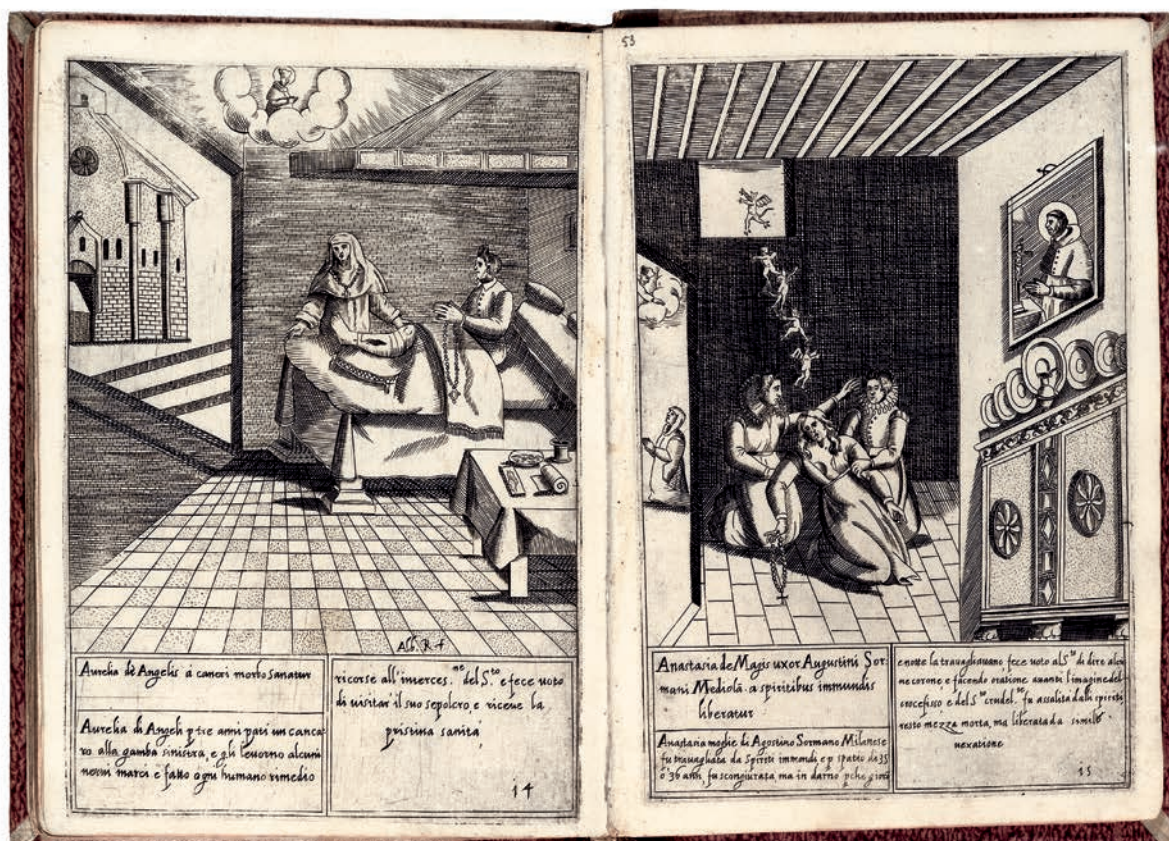 Alb. R. f
Aurelia de Angelis à cancri morbo sanatur
Aurelia di Angeli p tre anni pati un canca=
ro alla gamba sinistra, e gli leuorno alcuni
nerui marci e fatto ogni humano rimedio
ricorse all'interces.ne del S.to e fece uoto
di uisitar il suo sepolcro, e riceue la
pristina sanita,
14
53
Anastasia de Magis uxor Augustini Sor=
mani Mediola. a spiritibus immundis
liberatur
Anastasia moglie di Agostino Sormano Milanese
fu trauagliata da Spiriti immondi, e p spatio da 35
ò 36 anni, fu scongiurata, ma in darno p che giorno
e notte la trauagliauano, fece uoto al S.to di dire alcu
ne corone, e facendo oratione auanti l'imagine del
crocefisso e del S.to fu assalita dalli spiriti,
resto mezza morta, ma liberata da simile
uexatione
15